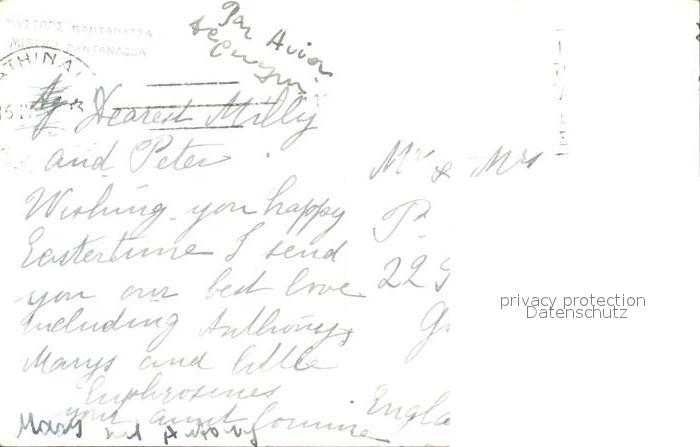 ΜΥΣΤΡΑΣ ΠΑΝΤΑΝΑΣΣΑ
MISTRA PANTANASSA
ATHINAI
Par Avion
My Dearest Milly
and Peter.
Wishing you happy
Eastertime I send
you our best love
including Anthonys
Marys and little
Euphrosines
your aunt
Mr & Mrs
P
22
England
privacy protection
Datenschutz